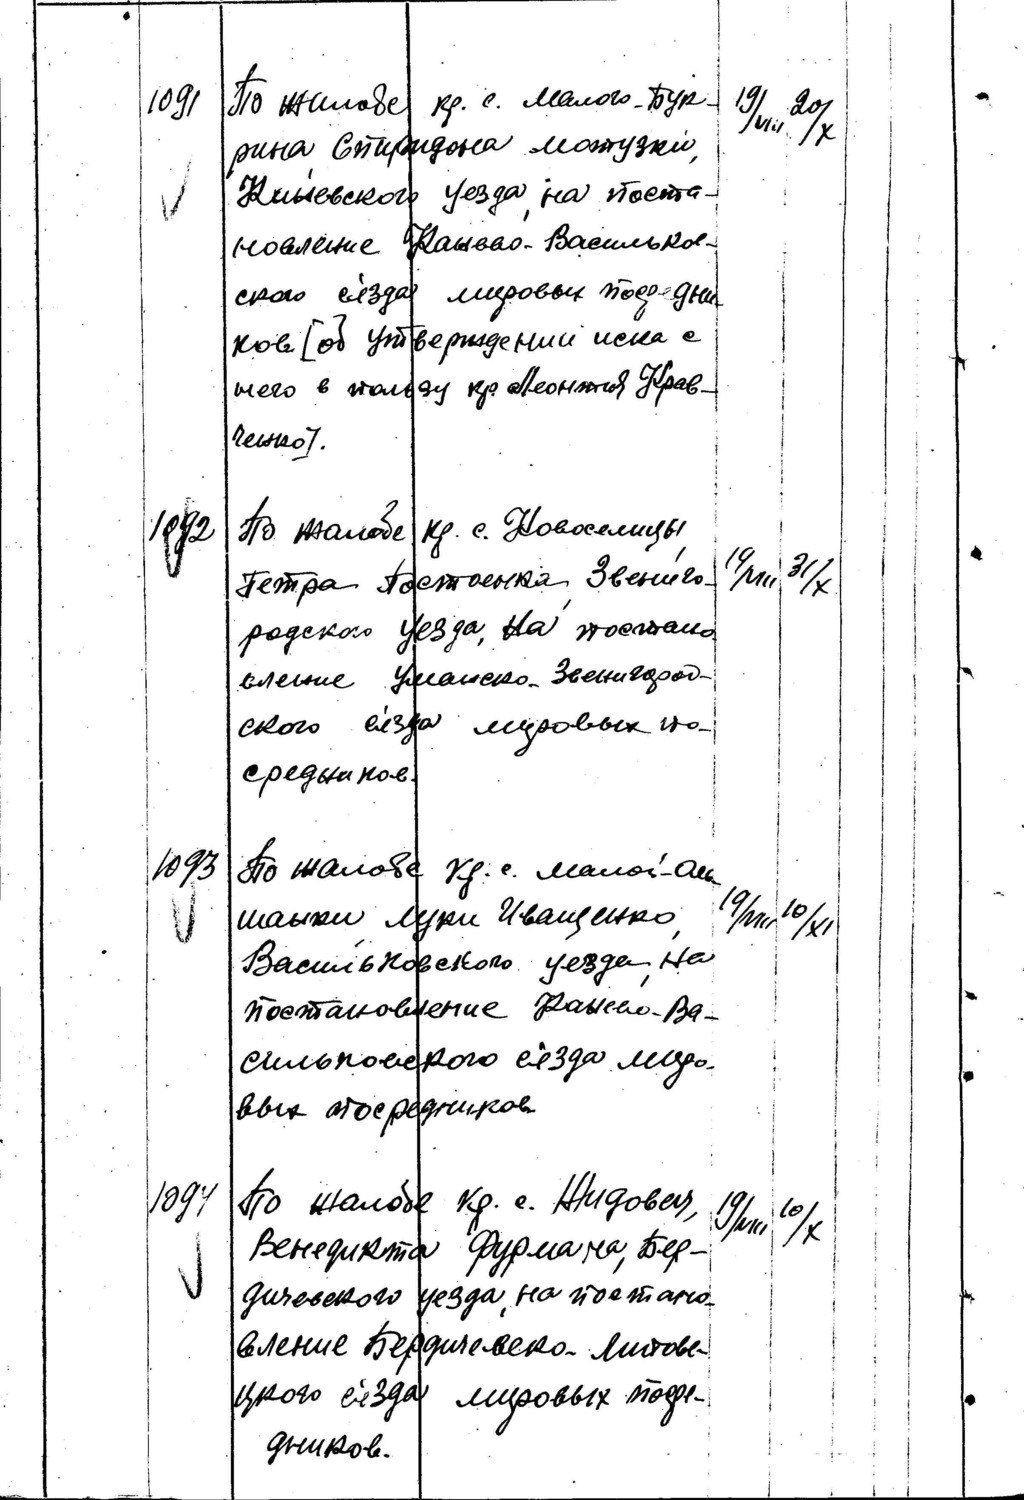 1091 По жалобе кр. с. Малого-Бук- 19/VIII 20/X
рина Спиридона Мотузки,
Киевского уезда, на поста-
новление Канево-Васильков-
ского съезда мировых посредни
ков [об утверждении иска с
него в пользу кр. Леонтия Крав-
ченко].
1092 По жалобе кр. с. Новоселицы,
Петра Постоенка, Звениго- 19/VIII 31/X
родского уезда, на постано
вление Уманско-Звенигород-
ского съезда мировых по-
средников.
1093 По жалобе кр. с. Малой-Ан
шанки Луки Иващенко, 19/VIII 10/XI
Васильковского уезда, на
постановление Канево-Ва-
сильковского съезда миро-
вых посредников
1094 По жалобе кр. с. Жидовец, 19/VIII 10/X
Венедикта Фурмана, Бер-
дичевского уезда, на постано-
вление Бердичевско-Липове-
цкого съезда мировых посре-
дников.